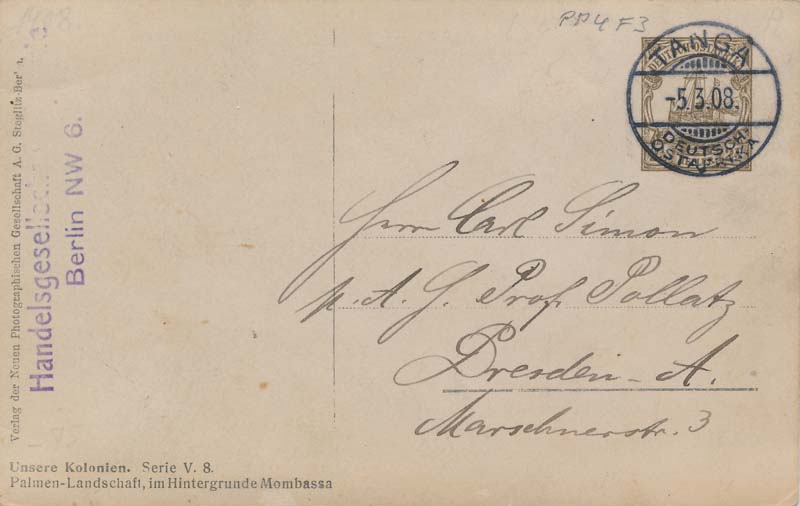 PP4 F3
TANGA
-5.3.08.
DEUTSCH-
OSTAFRIKA
Herrn Carl Simon
p. A. G. Prof. Pollatz
Dresden-A.
Marschnerstr. 3
Verlag der Neuen Photographischen Gesellschaft A. G. Steglitz-Berlin.
Berlin NW 6.
Unsere Kolonien. Serie V. 8.
Palmen-Landschaft, im Hintergrunde Mombassa